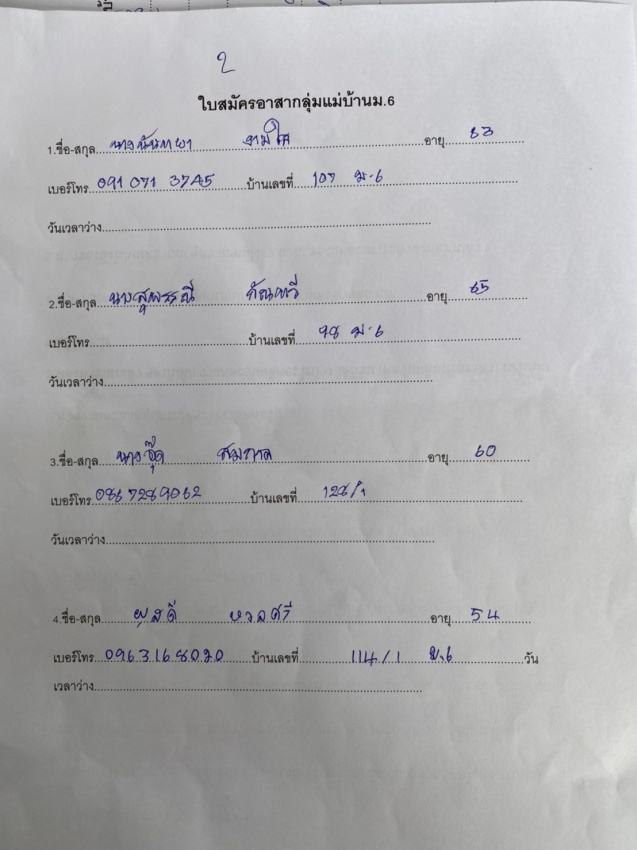 2
ใบสมัครอาสากลุ่มแม่บ้านม.6
1.ชื่อ-สกุล นางนันทพา งามใส อายุ 63
เบอร์โทร 091 071 3745 บ้านเลขที่ 107 ม.6
วันเวลาว่าง
2.ชื่อ-สกุล นางสุพรรณี กัณฑวี อายุ 65
เบอร์โทร บ้านเลขที่ 98 ม.6
วันเวลาว่าง
3.ชื่อ-สกุล นางจุ๊ด สมภาค อายุ 60
เบอร์โทร 0867289062 บ้านเลขที่ 128/1
วันเวลาว่าง
4.ชื่อ-สกุล ผุสดี หวลศรี อายุ 54
เบอร์โทร 0963168020 บ้านเลขที่ 114/1 ม.6 วัน
เวลาว่าง